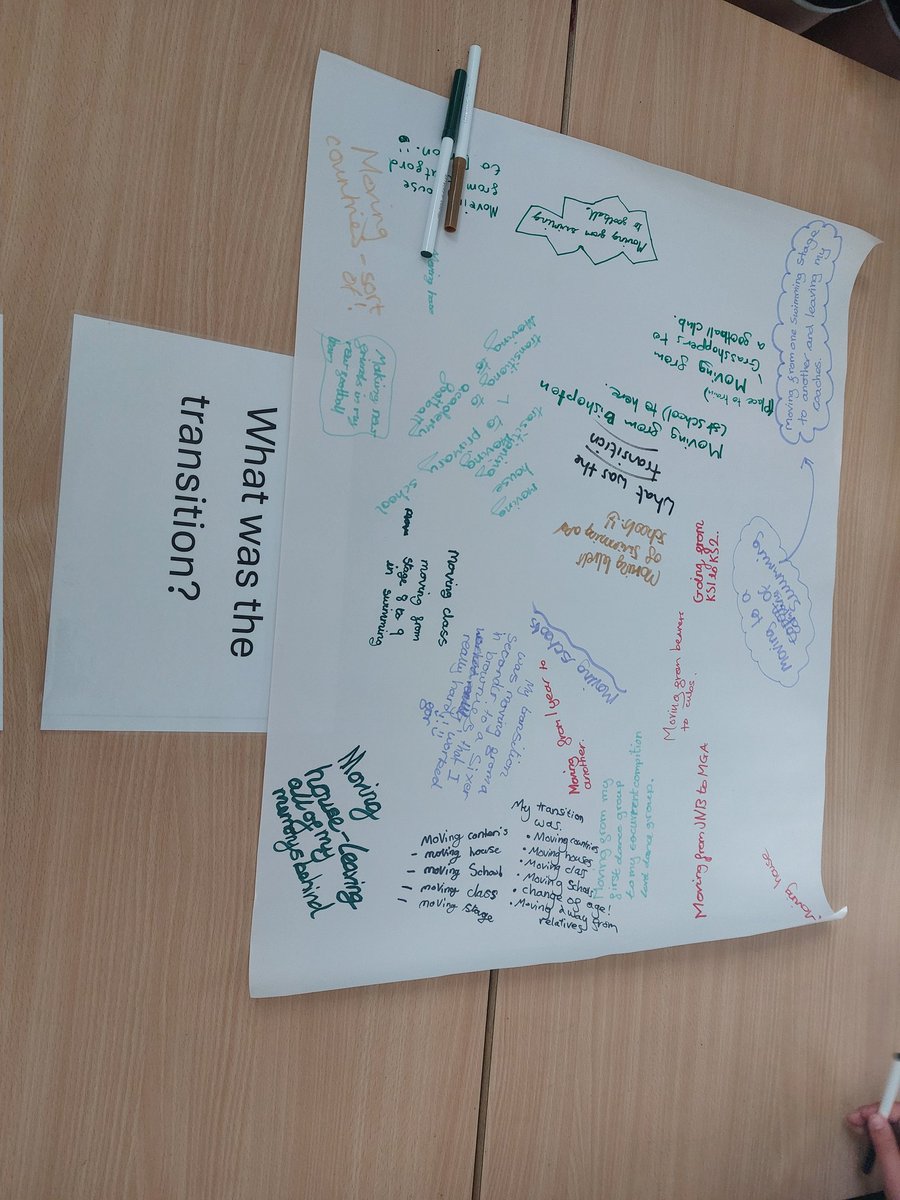 What was the
transition?
Moving - sort
of!
countries
Making new
friends in my
new football
team
Moving from swimming
to football.
moving from one swimming stage
to another and leaving my
coaches.
Moving from
Grasshoppers to
a football club.
(Place to train)
Moving from Bishopton
(1st school) to here.
What was the
transition
Moving levels
of swimming and
schools.
Going from
KS1 to KS2.
moving to a
swimming
transitioning
to primary school
moving
house
moving class
moving from
stage 8 to 9
in swimming
Moving schools
My transition
was moving from a
seconder to a sixer
in brownies, that I
worked
really hard
for
Moving from 1 year to
another.
Moving from beavers
to cubs.
Moving from JNB to MGA
Moving from my
first dance group
to my
dance group.
Moving
house - leaving
all of my
memorys behind
- moving house
- moving School
- moving class
- moving stage
My transition
was.
• Moving countries
• Moving houses
• Moving class
• Moving School
• change of age!
• Moving away from
relatives
Moving house